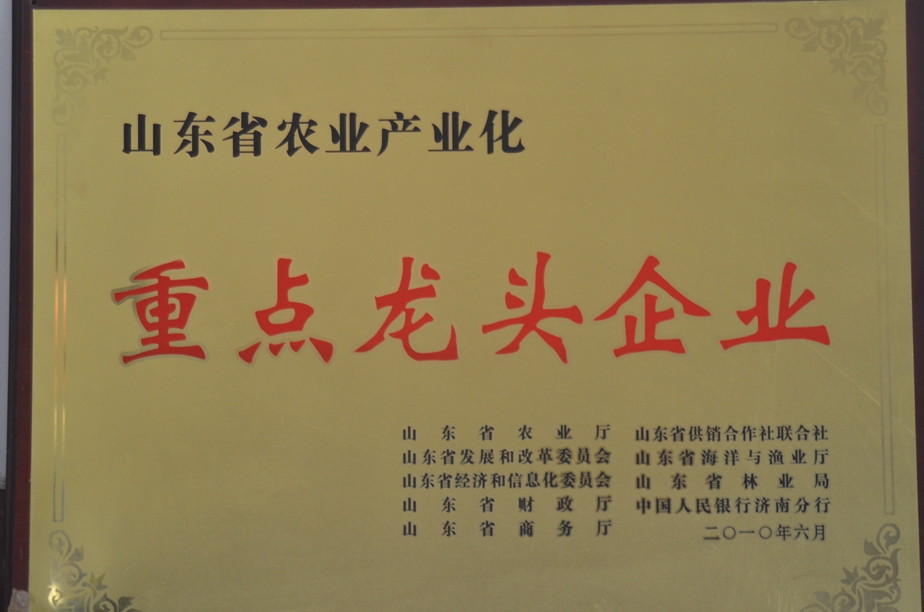 山东省农业产业化
重点龙头企业
山东省农业厅 山东省供销合作社联合社
山东省发展和改革委员会 山东省海洋与渔业厅
山东省经济和信息化委员会 山东省林业局
山东省财政厅 中国人民银行济南分行
山东省商务厅 二〇一〇年六月